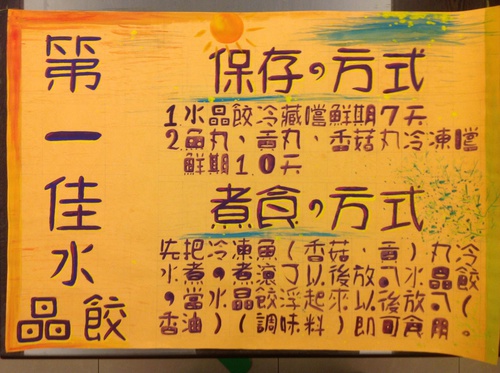 第一佳水
晶餃
保存的方式
1水晶餃冷藏嚐鮮期7天
2魚丸、貢丸、香菇丸冷凍嚐
鮮期10天
煮食的方式
先把冷凍魚(香菇、貢)丸冷
水煮，煮滾了以後，放入晶餃
，當水晶餃浮起來以後放入(
香油)(調味料)即可食用。